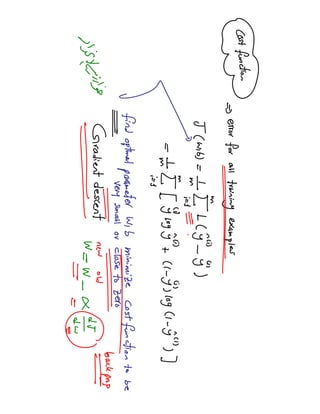 Cost function
⇒ error for all training examples
J(w,b) = 1/m Σ_{i=1}^{m} L(ŷ^(i) - y^(i))
= 1/m Σ_{i=1}^{m} [ y^(i) log ŷ^(i) + (1-y^(i)) log (1-ŷ^(i)) ]
find optimal parameter w,b minimize cost function to be
very small or close to zero
Gradient descent
new old
W = W - α dJ/dw
back prop